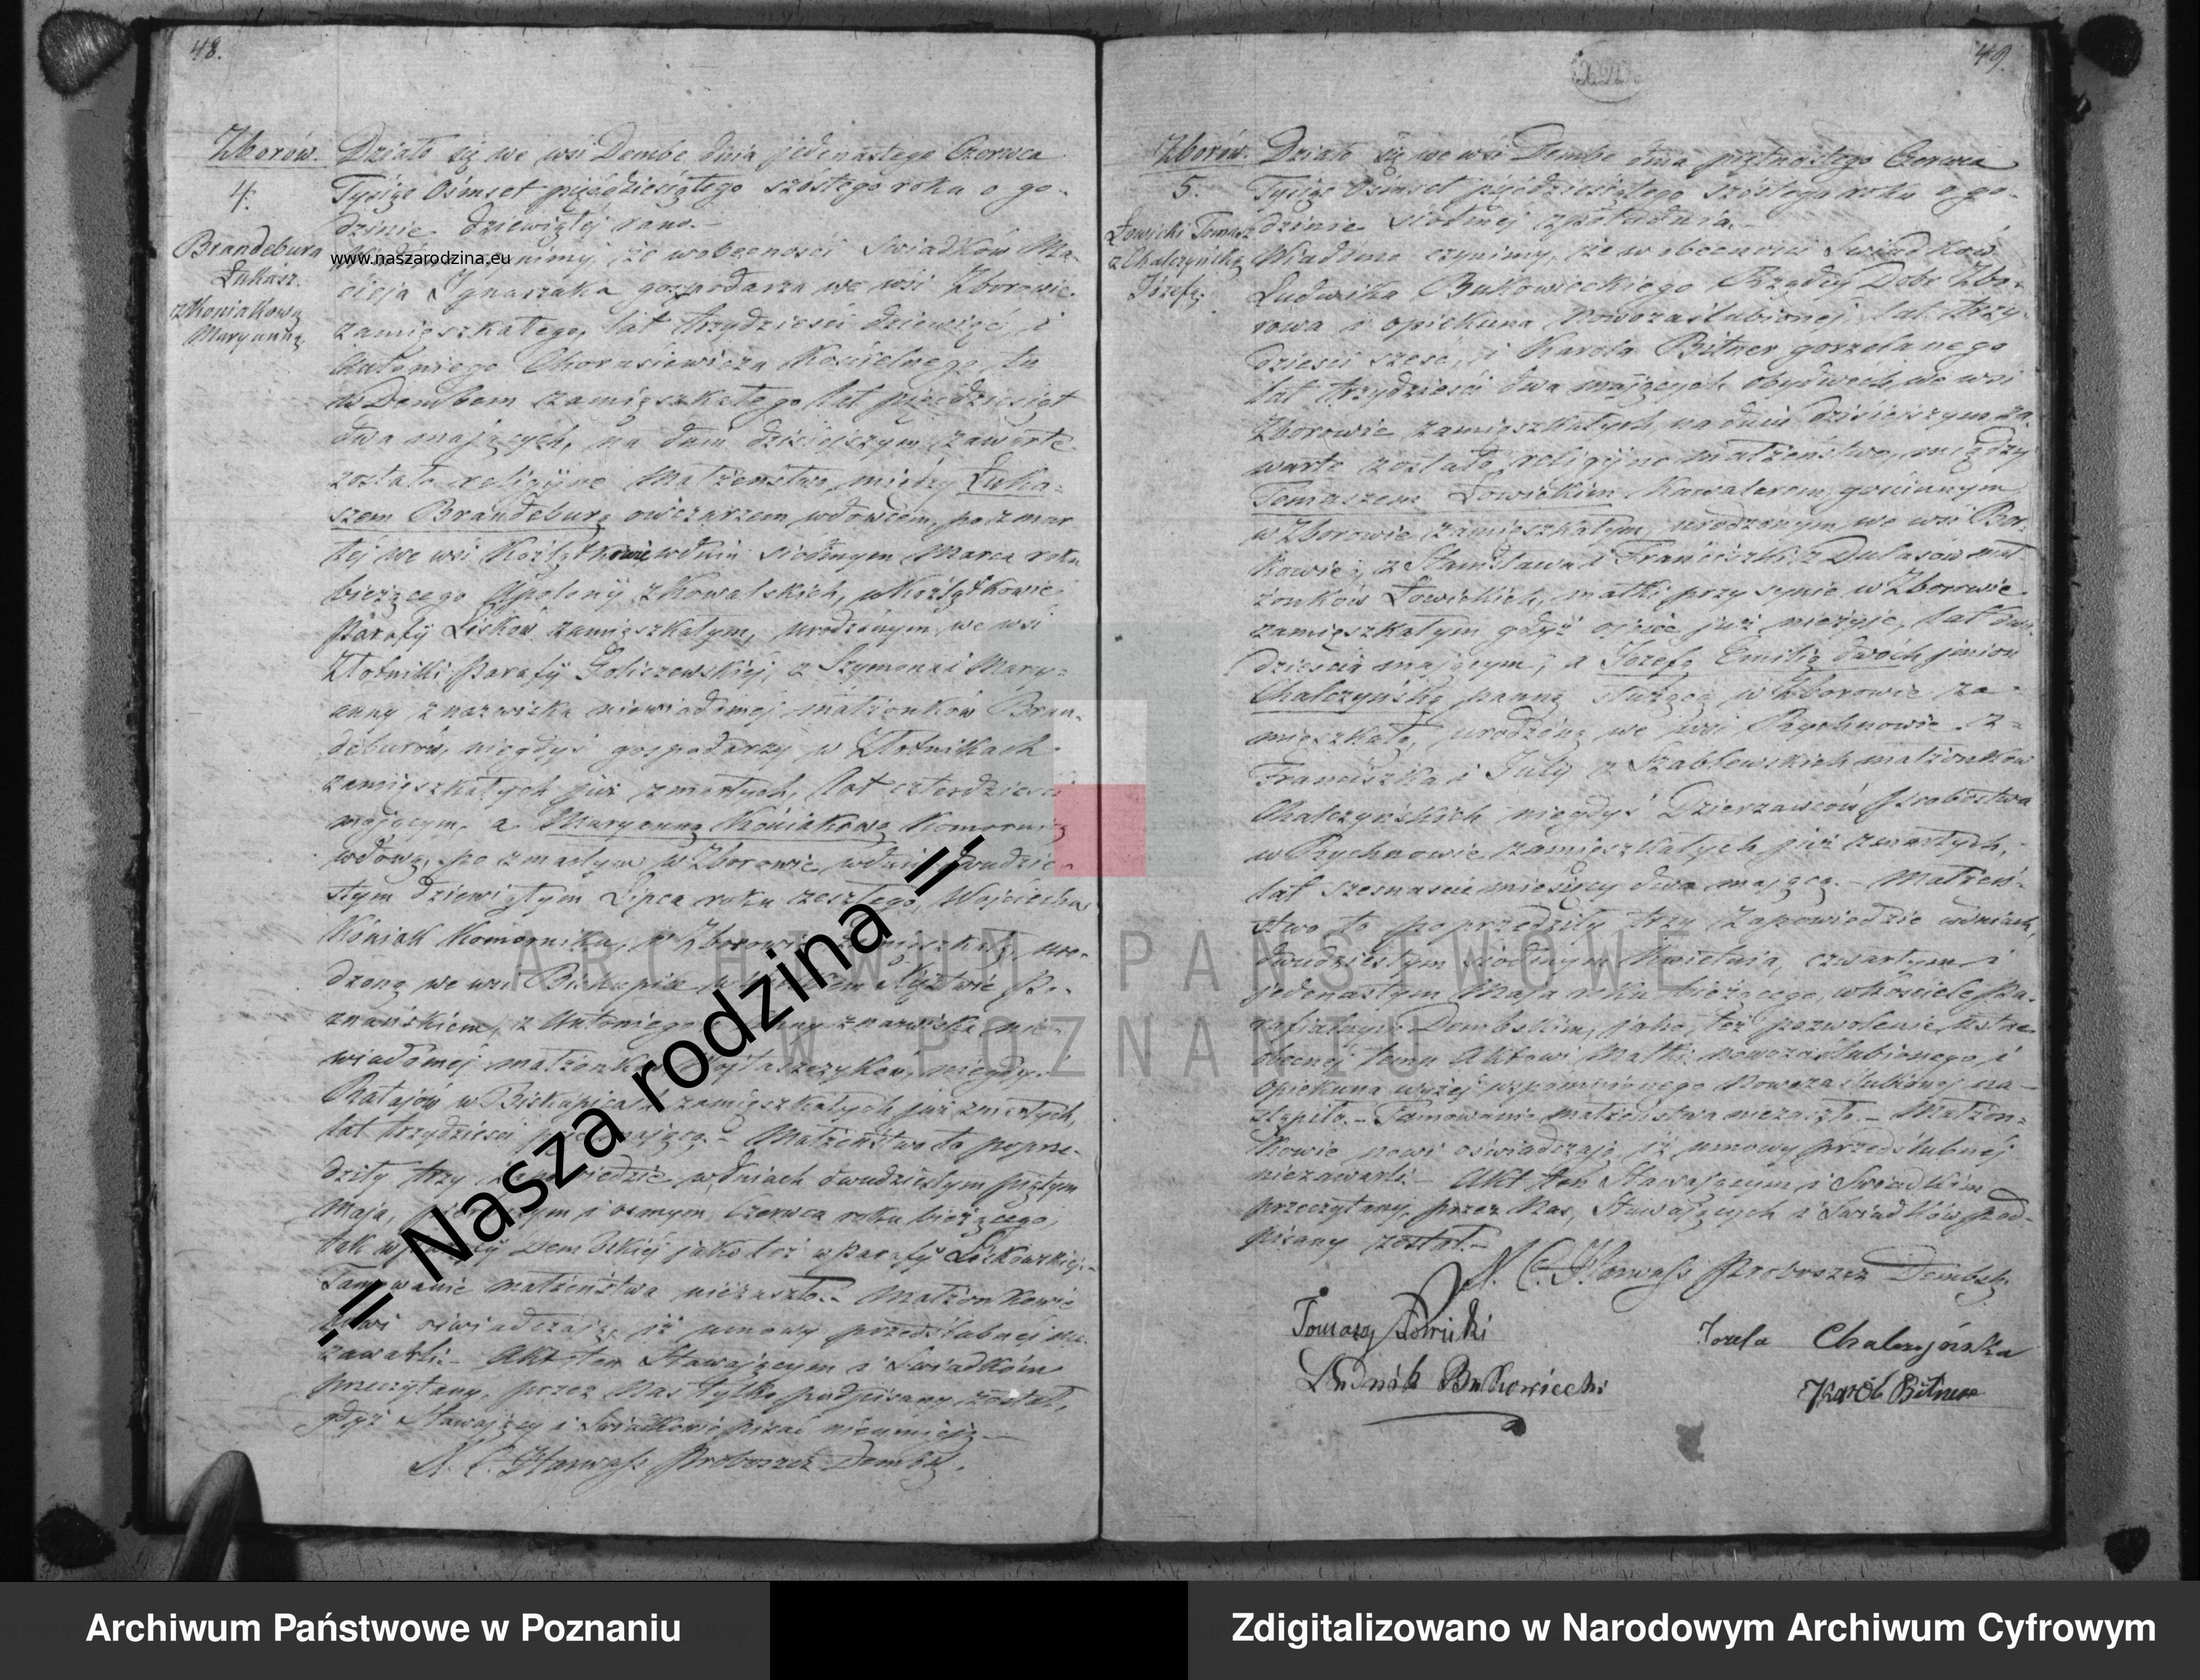 48.
Zborów.
4.
Brandebura
Łukasz.
z Koniakową
Maryanną
Działo się we wsi Dembe dnia jedenastego Czerwca
Tysiąc Ośmset pięćdziesiątego szóstego roku o go-
dzinie dziewiątej rano.-
www.naszarodzina.eu
czynimy, że w obecności Świadków Ma-
cieja Ignaszaka gospodarza we wsi Zborowie
zamięszkałego, lat trzydzieści dziewięć, i
Antoniego Chorasiewicza Kościelnego tu
w Dembem zamięszkałego lat pięćdziesiąt
dwa mających, na dniu dzisiejszym zawarte
zostało religijne Małżeństwo, między Łuka-
szem Brandeburą owczarzem wdowcem, po zmar
łej we wsi Koźlątkowie w dniu siódmym Marca roku
bieżącego Apolony z Kowalskich, w Koźlątkowie
Parafy Lisków zamięszkałym, urodzonym we wsi
Złotniki Parafy Goliszewskiej, z Szymona i Mary-
anny z nazwiska niewiadomej małżonków Bran-
deburów, niegdyś gospodarzy w Złotnikach
zamięszkałych już zmarłych, lat czterdzieści
mającym, a Maryanną Koniakową Komornicą
wdową, po zmarłym w Zborowie, w dniu dwudzie-
stym dziewiątym Lipca roku zeszłego, Wojciechu
Koniak Komorniku, w Zborowie zamięszkałą, uro-
dzoną we wsi Biskupice w Xięztwie Po-
znańskiem, z Antoniego z nazwiska nie-
wiadomej małżonków niegdyś
Ratajów w Biskupicach zamięszkałych już zmarłych,
lat trzydzieści mającą.- Małżeństwo to poprze-
dziły trzy zapowiedzie w dniach dwudziestym piątym
Maja, pierwszym i ósmym Czerwca roku bieżącego,
tak w parafy Dembskiej jako też w Parafy Liskowskiej.-
Tamowanie małżeństwa niezaszło.- Małżonkowie
nowi oświadczają, iż umowy przedślubnej nie
zawarli.- Akt ten Stawającym i Świadkom
przeczytany, przez Nas tylko podpisany został,
gdyż Stawający i Świadkowie pisać nieumieją.-
Proboszcz Dembsk.
49.
Zborów.
5.
Łowicki Tomasz
z Chałczyńską
Józefą
Działo się we wsi Dembe dnia piętnastego Czerwca
Tysiąc Ośmset pięćdziesiątego szóstego roku o go-
dzinie siódmej z południa.-
Wiadomo czynimy, że w obecności Świadków
Ludwika Bukowieckiego Rządcy Dóbr Zbo-
rowa i opiekuna Nowozaślubionej, lat trzy-
dzieści sześć, i Karola Bitner gorzelanego
lat trzydzieści dwa mających, obydwóch we wsi
Zborowie zamięszkałych na dniu dzisiejszym za
warte zostało religijne małżeństwo, między
Tomaszem Łowickim Kawalerem, gościnnym
w Zborowie zamięszkałym, urodzonym we wsi Bor
kowie, z Stanisława i Franciszki z Dulasów mał
żonków Łowickich, matki przy synie w Zborowie
zamięszkałym gdyż ojciec już nieżyje, lat dwa
dzieścia mającym; a Józefą Emilią dwóch imion
Chałczyńską panną służącą w Zborowie za-
mięszkałą, urodzoną we wsi Rychnowie z
Franciszka i Julij z Szablewskich małżonków
Chałczyńskich niegdyś Dzierżawców Probostwa
w Rychnowie zamięszkałych już zmarłych,
lat szesnaście miesięcy dwa mającą.- Małżeń-
stwo to poprzedziły trzy Zapowiedzie w dniach,
dwudziestym siódmym Kwietnia, czwartym i
jedenastym Maja roku bieżącego, w Kościele Pa-
rafialnym Dembskim, jako też pozwolenie ustne
obecnej temu Aktowi Matki nowozaślubionego, i
opiekuna wyżej wspomnionego Nowozaślubionej na-
stąpiło.- Tamowanie małżeństwa niezaszło.- Małżon-
kowie nowi oświadczają iż umowy przedślubnej
niezawarli.- Akt ten Stawającym i Świadkom
przeczytany, przez Nas, Stawających i Świadków pod-
pisany został.-
Proboszcz Dembsk.
Tomasz Łowicki
Józefa Chałczyńska
Ludwik Bukowiecki
Karól Bitner
.:: Nasza rodzina ::.
ARCHIWUM PAŃSTWOWE
W POZNANIU
Archiwum Państwowe w Poznaniu
Zdigitalizowano w Narodowym Archiwum Cyfrowym